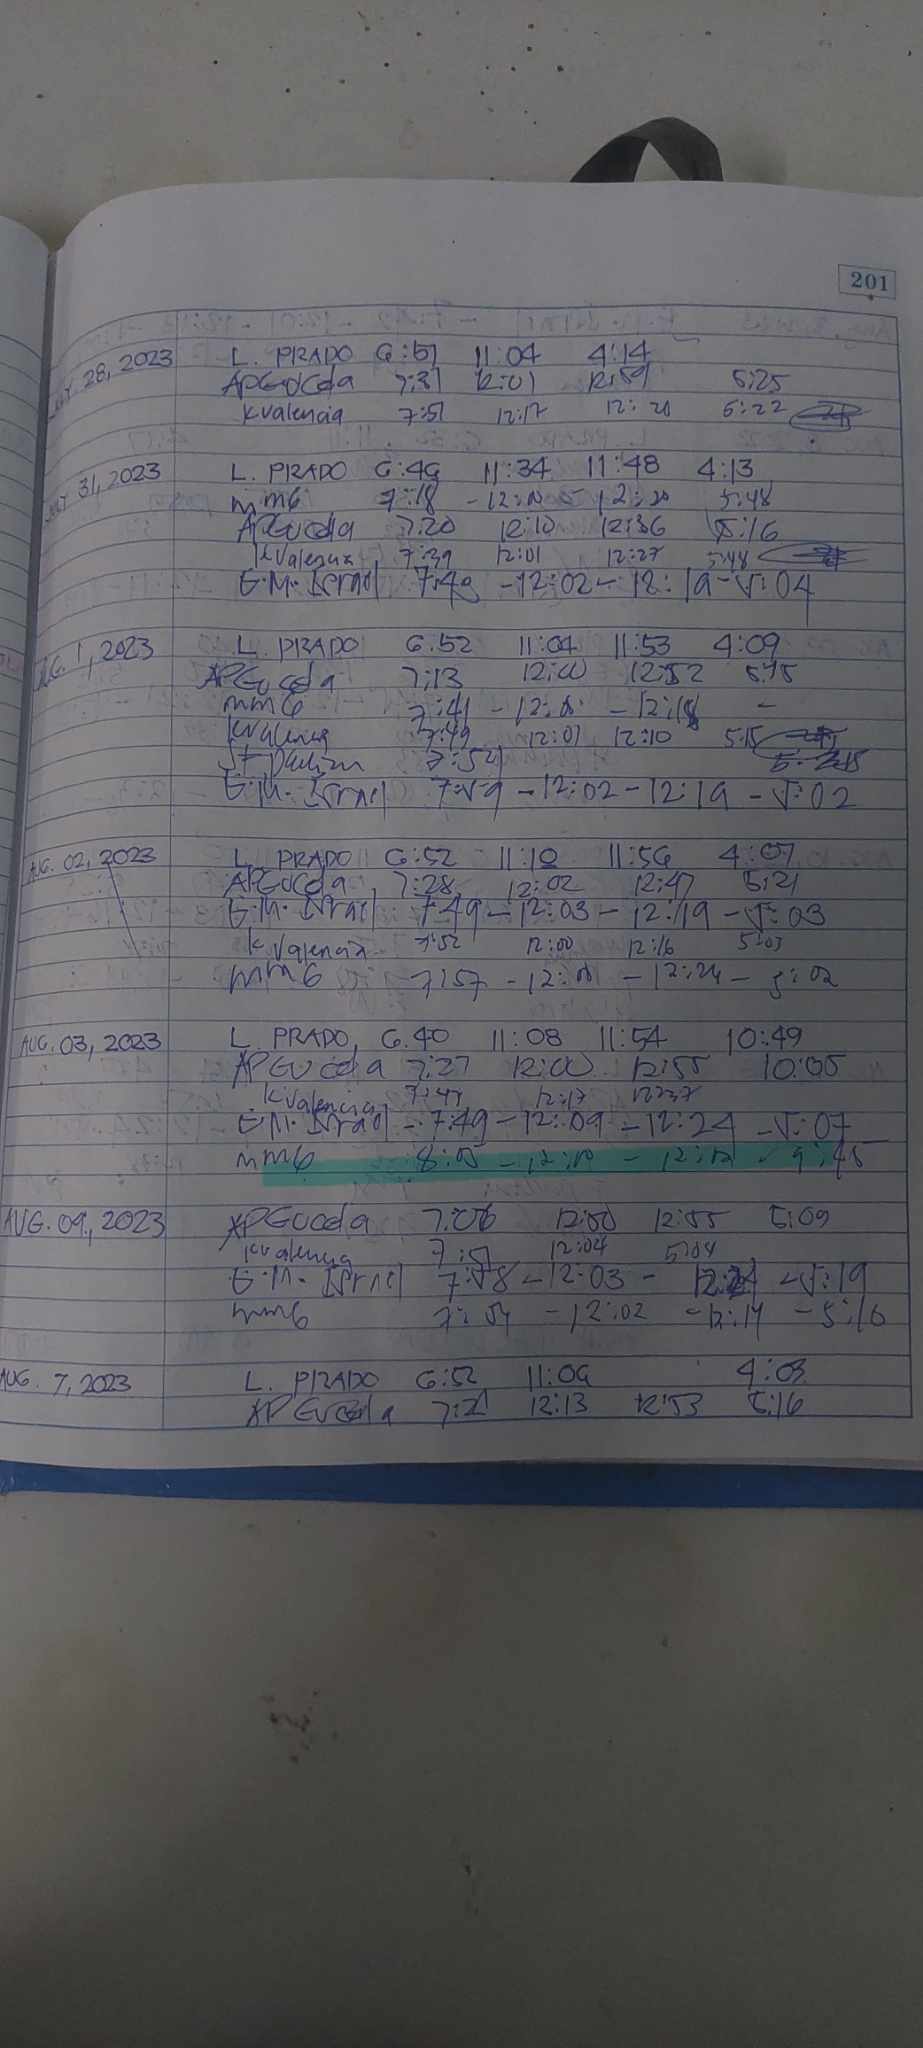 201
28, 2023 L. PRADO 6:51 11:04 4:14
7:31 12:01 12:59 5:25
KValencia 7:51 12:17 12:20 5:22
31, 2023 L. PRADO 6:49 11:34 11:48 4:13
mmG 7:18 - 12: 12:20 5:48
7:20 12:10 12:36 5:16
KValencia 7:39 12:01 12:27 5:48
E.M. Israel 7:49 - 12:02 - 12:19 - 5:04
1, 2023 L. PRADO 6:52 11:04 11:53 4:09
7:13 12:00 12:52 5:15
mmG 7:41 - 12: - 12:18 -
KValencia 7:49 12:01 12:10 5:15
7:54
E.M. Israel 7:59 - 12:02 - 12:19 - 5:02
AUG. 02, 2023 L. PRADO 6:52 11:10 11:56 4:07
7:28 12:02 12:47 5:21
E.M. Israel 7:49 - 12:03 - 12:19 - 5:03
KValencia 7:52 12:00 12:16 5:03
mmG 7:57 - 12: - 12:24 - 5:02
AUG. 03, 2023 L. PRADO 6:40 11:08 11:54 10:49
7:27 12:00 12:55 10:05
KValencia 12:17 12:37
E.M. Israel - 7:49 - 12:09 - 12:24 - 5:07
mmG 8:05 - 12:10 - 12:12 - 9:45
AUG. 04, 2023 7:06 12:50 12:55 5:09
KValencia 7:51 12:04 5:04
E.M. Israel 7:58 - 12:03 - - 5:19
mmG 7:54 - 12:02 - 12:14 - 5:16
AUG. 7, 2023 L. PRADO 6:52 11:06 4:03
7:21 12:13 12:53 5:16